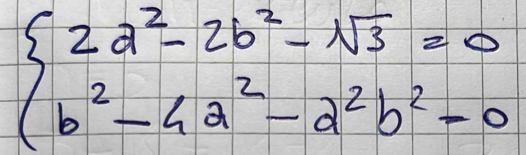 2a² - 2b² - √3 = 0
b² - 4a² - a²b² = 0